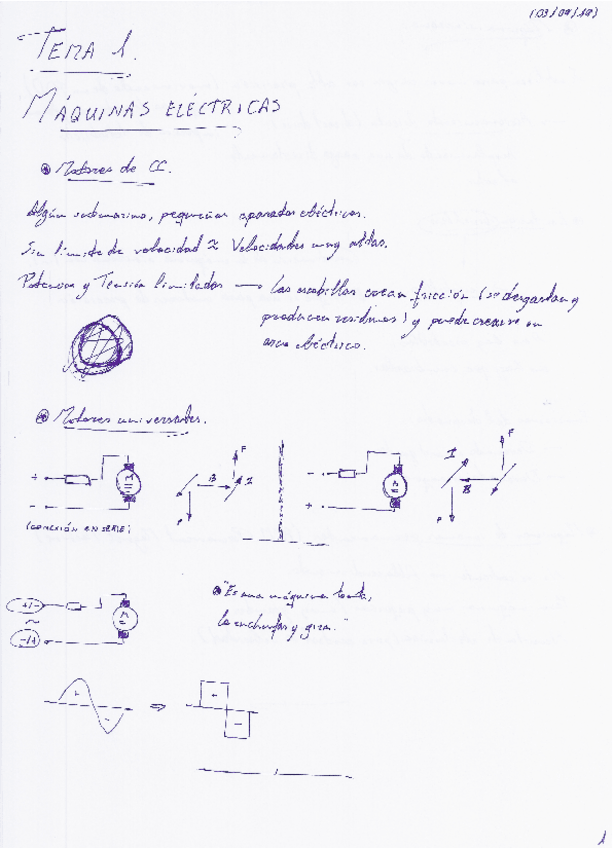 TEMA 1.
MÁQUINAS ELÉCTRICAS
Motores de CC.
Algún submarino, pequeños aparatos eléctricos.
Sin límite de velocidad ≈ Velocidades muy altas.
Potencia y Tensión limitadas → Las escobillas crean fricción (se desgastan y
producen residuos) y puede crearse un
arco eléctrico.
Motores universales.
F F
I
+ M B I - M B
- F + F
(CONEXIÓN EN SERIE)
"Es una máquina tonta,
+/- M
la enchufas y gira."
~
-/+
+ - ⇒ + -
1